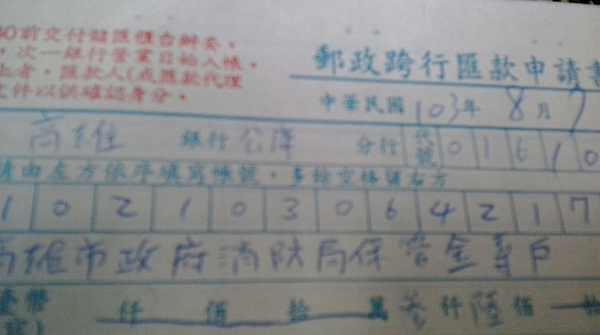 30前交付儲匯櫃台辦妥，
，次一銀行營業日始入帳。
上者，匯款人(或匯款代理
文件以供確認身分。
郵政跨行匯款申請書
中華民國 103年 8月 7
高雄 銀行 公庫 分行 代號 0 1 6 1 0
請由左方依序填寫帳號，多餘空格留右方
1 0 2 1 0 3 0 6 4 2 1 7
高雄市政府消防局保管金專戶
臺幣 仟 佰 拾 萬 參 仟 陸 佰 拾